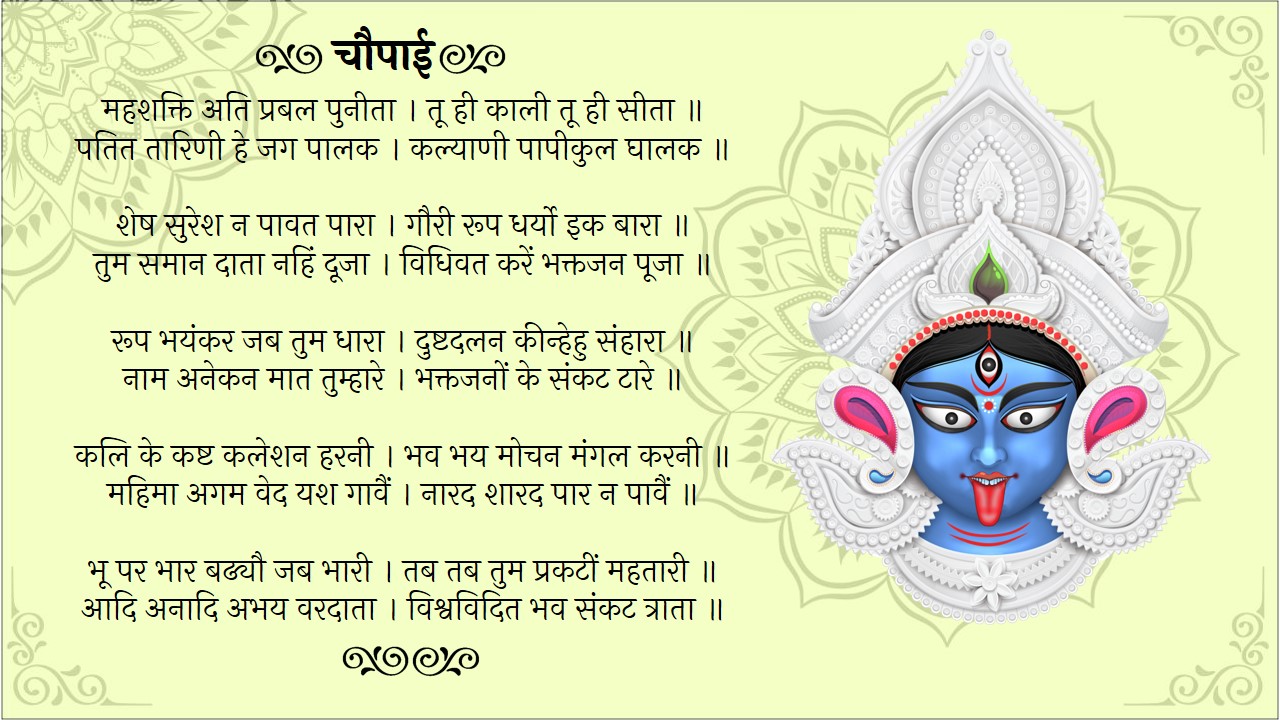 चौपाई
महशक्ति अति प्रबल पुनीता । तू ही काली तू ही सीता ॥
पतित तारिणी हे जग पालक । कल्याणी पापीकुल घालक ॥
शेष सुरेश न पावत पारा । गौरी रूप धर्यो इक बारा ॥
तुम समान दाता नहिं दूजा । विधिवत करें भक्तजन पूजा ॥
रूप भयंकर जब तुम धारा । दुष्टदलन कीन्हेहु संहारा ॥
नाम अनेकन मात तुम्हारे । भक्तजनों के संकट टारे ॥
कलि के कष्ट कलेशन हरनी । भव भय मोचन मंगल करनी ॥
महिमा अगम वेद यश गावैं । नारद शारद पार न पावैं ॥
भू पर भार बढ्यौ जब भारी । तब तब तुम प्रकटीं महतारी ॥
आदि अनादि अभय वरदाता । विश्वविदित भव संकट त्राता ॥